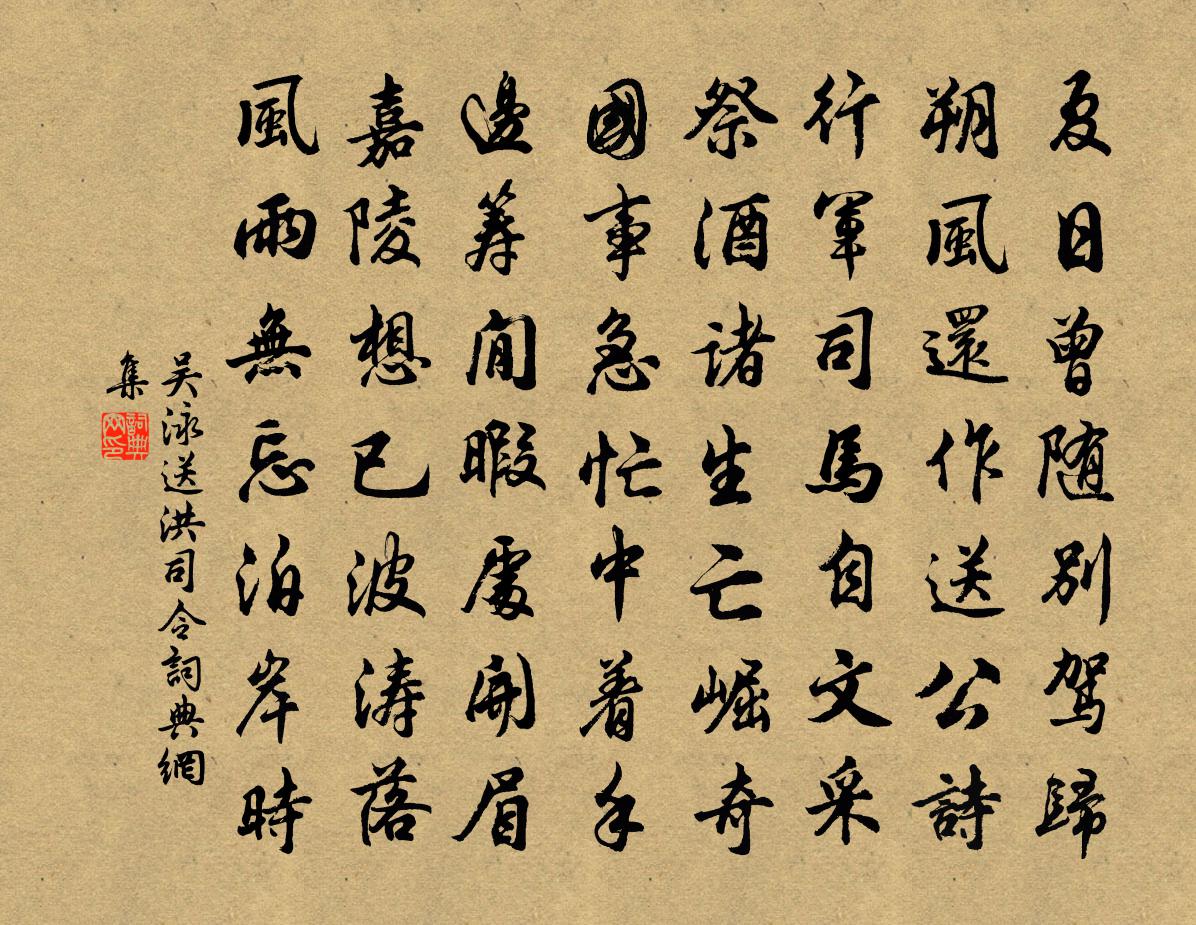 夏日曾随別駕歸
朔風還作送公詩
行軍司馬自文采
祭酒諸生亡崛奇
國事急忙中着手
邊筹閒暇處開眉
嘉陵想已波涛落
風雨無忘泊岸時
吴泳送洪司令詞典網
集
詞典网印